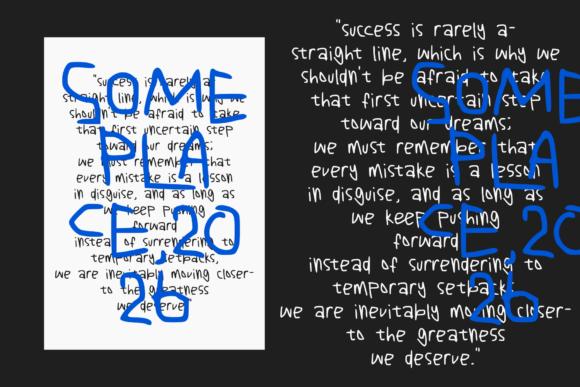 "success is rarely a-
straight line, which is why we
shouldn't be afraid to take
that first uncertain step
toward our dreams;
we must remember that
every mistake is a lesson
in disguise, and as long as
we keep pushing
forward
instead of surrendering to
temporary setbacks,
we are inevitably moving closer-
to the greatness
we deserve."
SOME
PLA
CE,20
26
"success is rarely a-
straight line, which is why we
shouldn't be afraid to take
that first uncertain step
toward our dreams;
we must remember that
every mistake is a lesson
in disguise, and as long as
we keep pushing
forward
instead of surrendering to
temporary setbacks,
we are inevitably moving closer-
to the greatness
we deserve."
SOME
PLA
CE,20
26